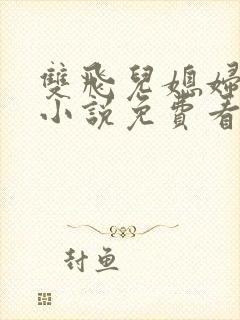 雙飛兒媳婦
小說免費看
封魚